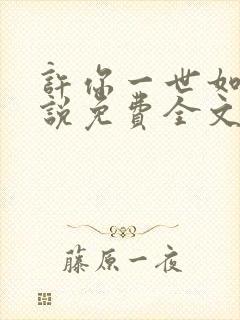 許你一世如
說免費全文
藤原一夜